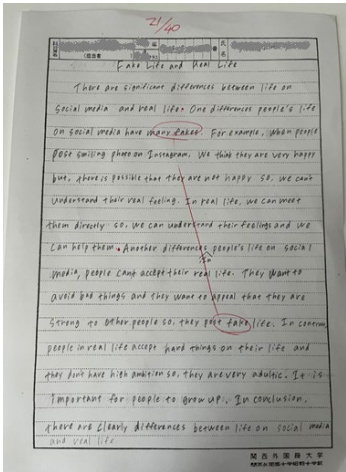 21/40
Fake Life and Real Life
There are significant differences between life on
social media and real life. One differences people's life
on social media have many fakes. For example, when people
post smiling photo on Instagram, we think they are very happy
but, there is possible that they are not happy so, we can't
understand their real feeling. In real life, we can meet
them directly so, we can understand their feelings and we
can help them. Another differences people's life on social
media, people can't accept their real life. They want to
avoid bad things and they want to appeal that they are
strong to other people so, they post fake life. In contrast,
people in real life accept hard things on their life and
they don't have high ambition so, they are very adultic. It is
important for people to grow up. In conclusion,
there are clearly differences between life on social media
and real life
関西外国語大学